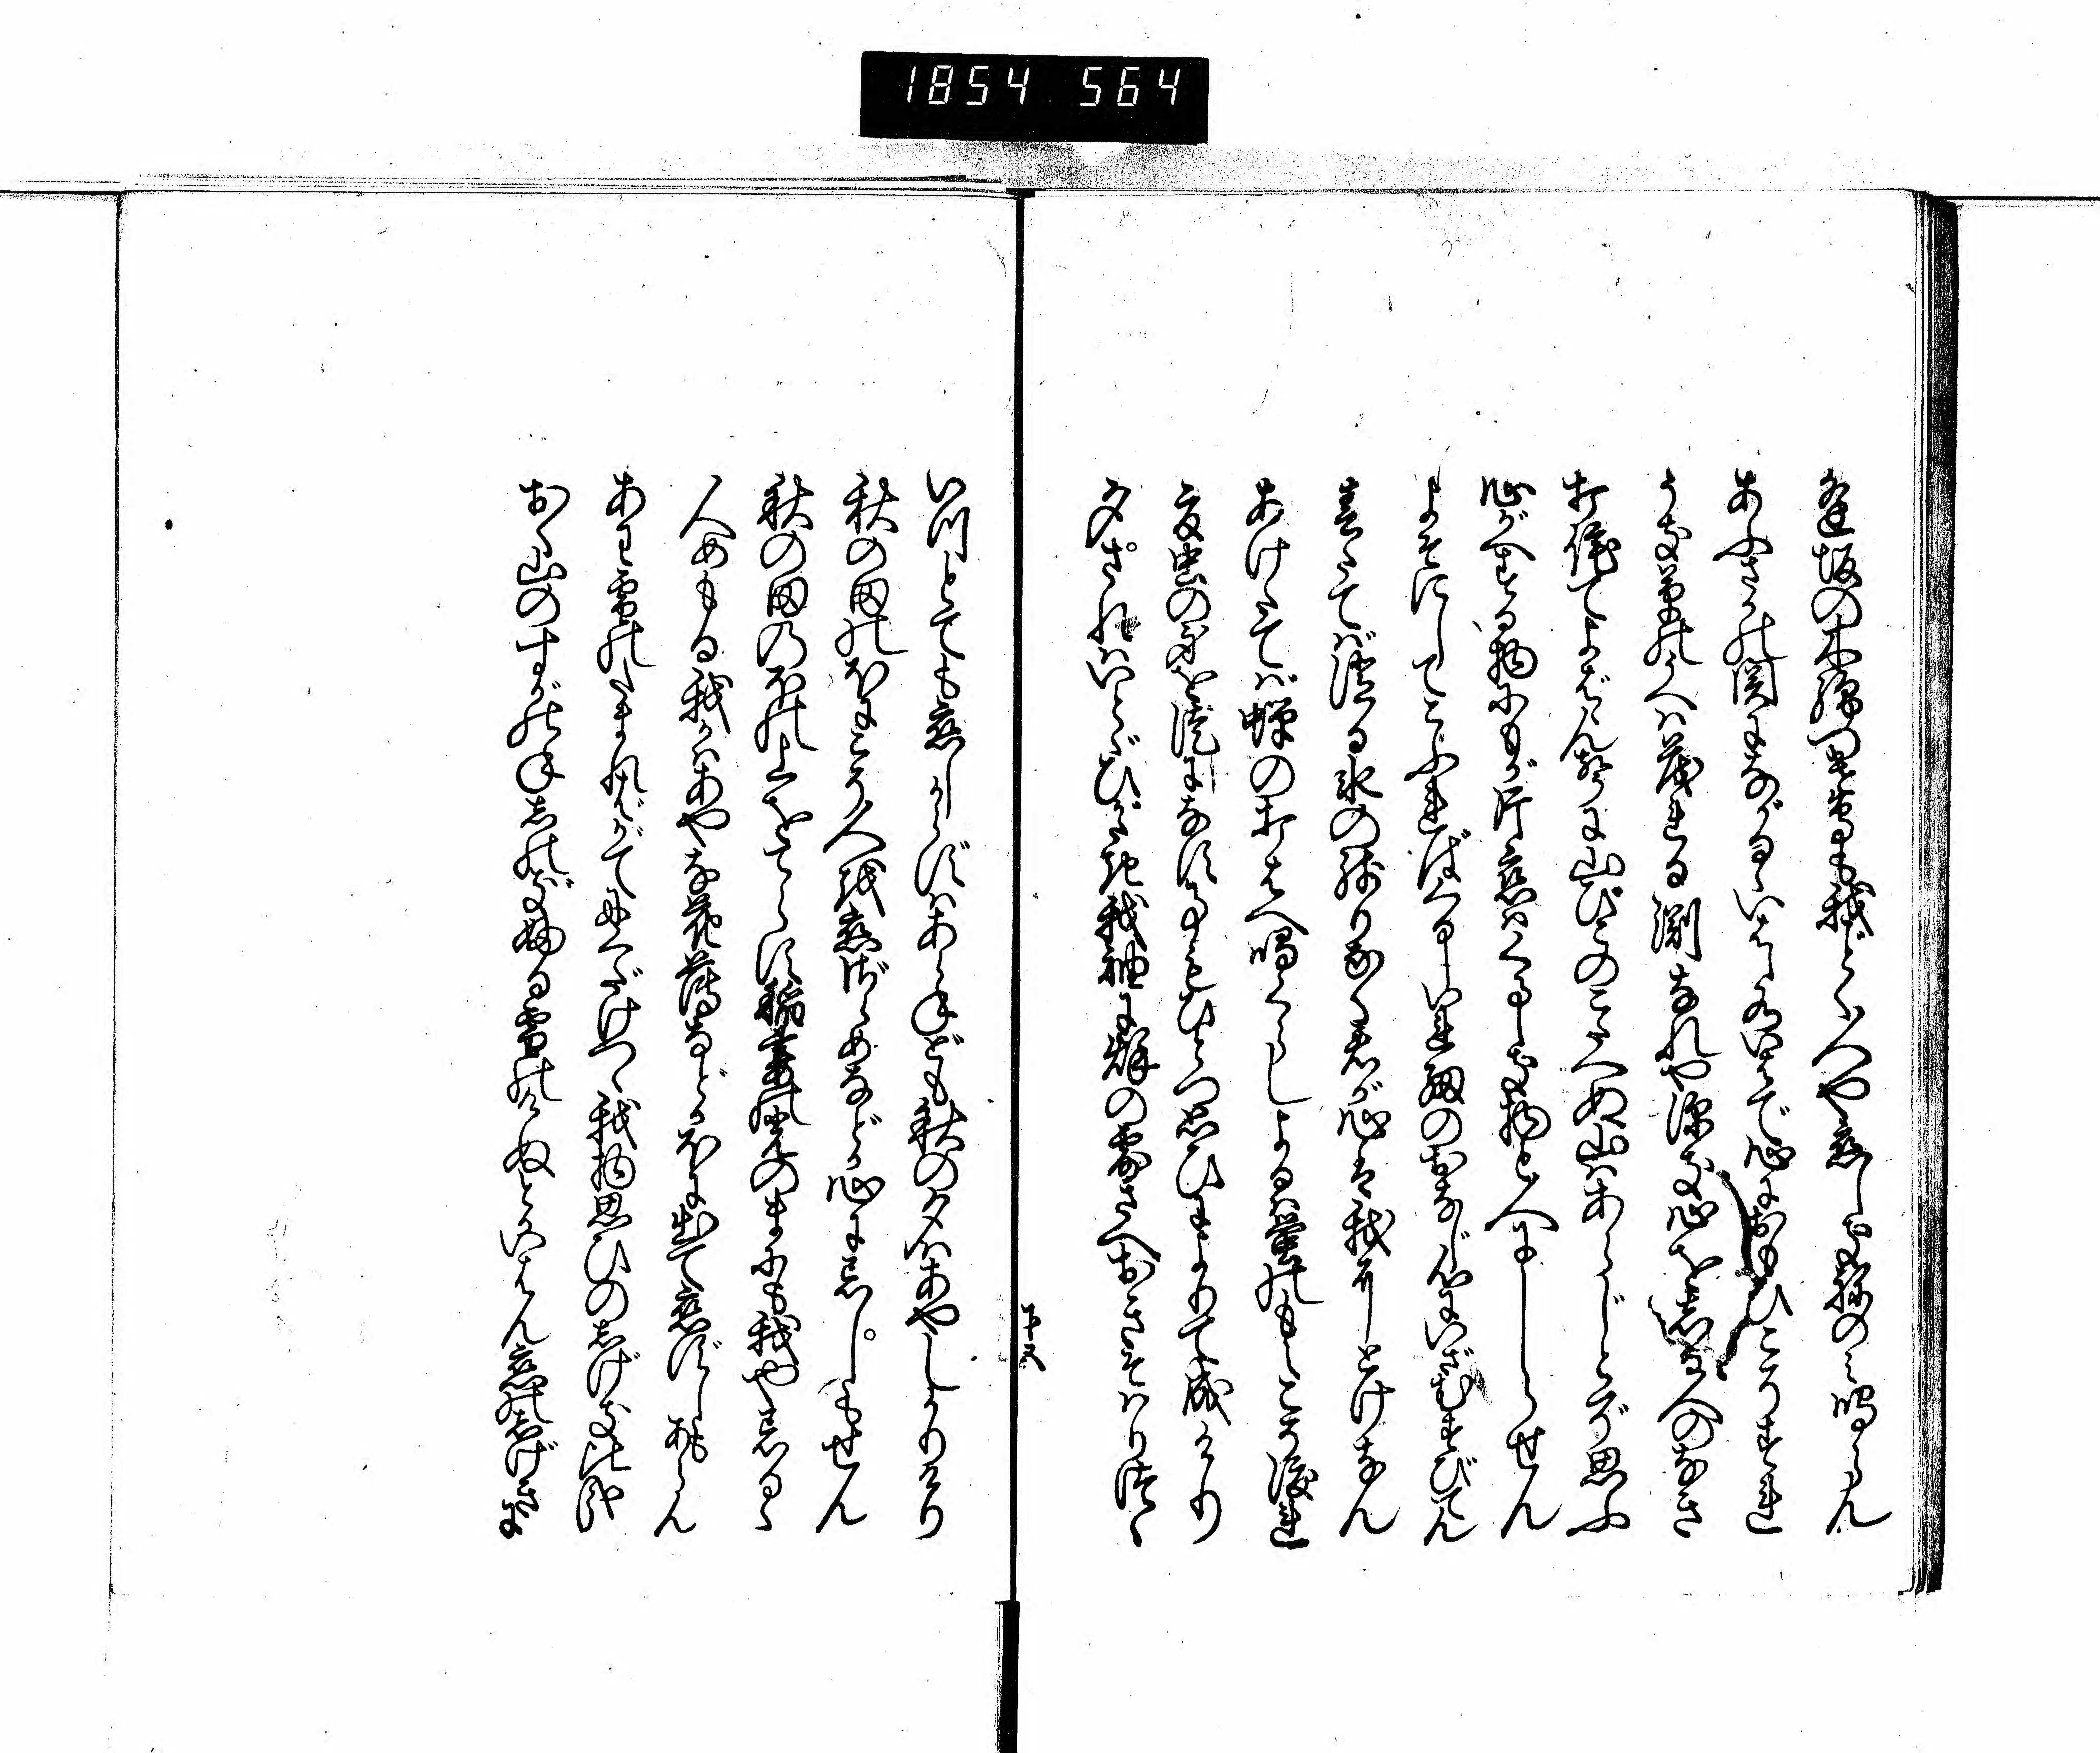 1854 564
逢坂の木綿つけ鳥も我ごとく人や恋しき音のミ鳴らん
あふさかの関にながるゝいはし水いはで心におもひこそすれ
うき草のうへは茂れる渕なれや深き心をしる人のなき
打侘てよばゝん声に山びこのこたへぬ山はあらじとぞ思ふ
心がへする物にもが片恋はくるしき物と人にしらせん
よそにしてこふればくるしいれ紐のおなじ心にいざむすびてん
春たてば消る氷の残りなく君が心は我にとけなん
あけたてば蝉のおりはへ鳴くらしよるは蛍のもえこそ渡れ
夏虫の身を徒になす事もひとつ思ひによりて成けり
夕されはいとゞひがたき我袖に秋の露さへおきそはりつゝ
下又
いつとても恋しからずはあらねども秋の夕はあやしかりけり
秋の田のほにこそ人を恋ざらめなどか心に忘しもせん
秋の田のほの上をてらす稲妻の光のまにも我や忘るゝ
人めもる我かはあやな花薄などかほに出て恋ずしもあらん
あは雪のたまればがてにくだけつゝ我物思ひのしげき比哉
おく山のすがのねしのぎふる雪のけぬとかいはん恋のしげきに